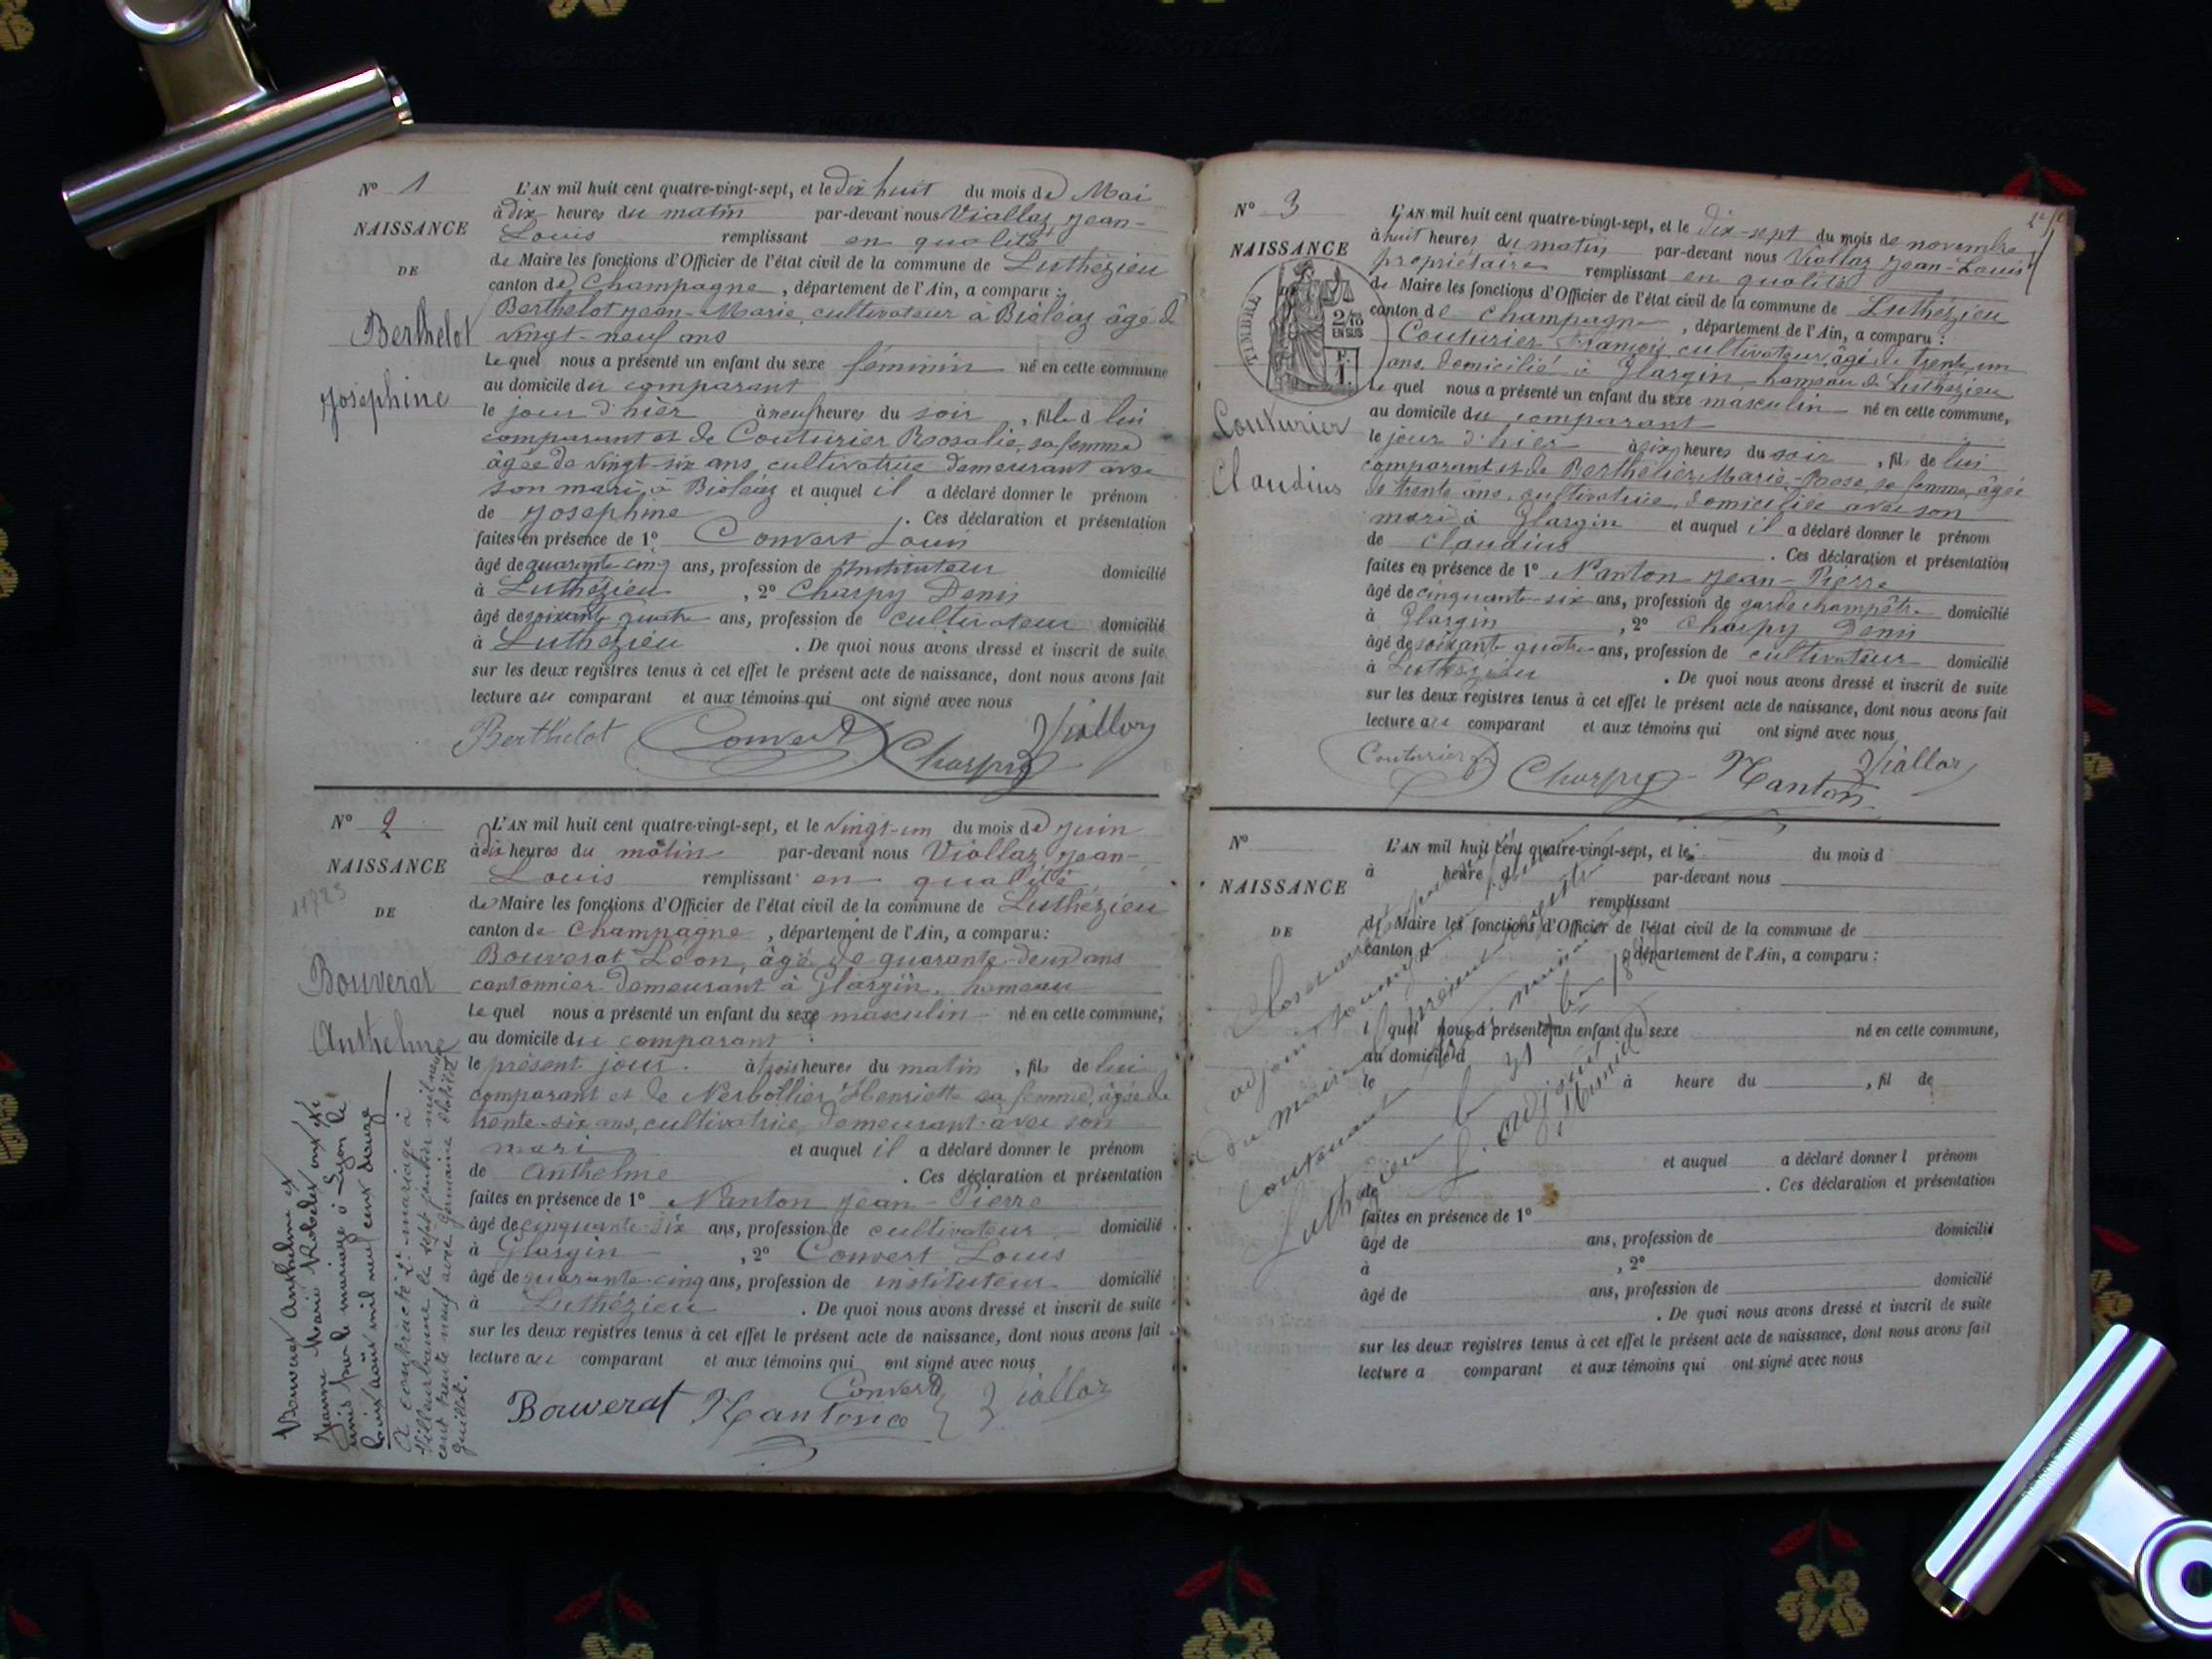 N° 1
NAISSANCE
DE
Berthelot
Joséphine
L'AN mil huit cent quatre-vingt-sept, et le dix huit du mois de Mai
à dix heures du matin par-devant nous Viallaz Jean-
Louis remplissant en qualité
de Maire les fonctions d'Officier de l'état civil de la commune de Luthézieu
canton de Champagne, département de l'Ain, a comparu :
Berthelot Jean-Marie, cultivateur à Bioléaz âgé de
vingt-neuf ans
Lequel nous a présenté un enfant du sexe féminin né en cette commune
au domicile du comparant
le jour d'hier à neuf heures du soir, fille d lui
comparant et de Couturier Rosalie, sa femme
âgée de vingt-six ans, cultivatrice demeurant avec
son mari à Bioléaz et auquel il a déclaré donner le prénom
de Joséphine. Ces déclaration et présentation
faites en présence de 1° Convert Louis
âgé de quarante cinq ans, profession de Instituteur domicilié
à Luthézieu, 2° Charpy Denis
âgé de soixante quatre ans, profession de cultivateur domicilié
à Luthézieu. De quoi nous avons dressé et inscrit de suite
sur les deux registres tenus à cet effet le présent acte de naissance, dont nous avons fait
lecture au comparant et aux témoins qui ont signé avec nous
Berthelot Convert Charpy Viallaz
N° 2
NAISSANCE
DE
Bouverat
Anthelme
L'AN mil huit cent quatre-vingt-sept, et le vingt-un du mois de Juin
à dix heures du matin par-devant nous Viallaz Jean-
Louis remplissant en qualité
de Maire les fonctions d'Officier de l'état civil de la commune de Luthézieu
canton de Champagne, département de l'Ain, a comparu :
Bouverat Léon, âgé de quarante-deux ans
cantonnier demeurant à Glargin, hameau
Lequel nous a présenté un enfant du sexe masculin né en cette commune,
au domicile du comparant
le présent jour à trois heures du matin, fils de lui
comparant et de Nerbollier Henriette sa femme, âgée de
trente-six ans, cultivatrice, demeurant avec son
mari et auquel il a déclaré donner le prénom
de Anthelme. Ces déclaration et présentation
faites en présence de 1° Nanton Jean-Pierre
âgé de cinquante-six ans, profession de cultivateur domicilié
à Glargin, 2° Convert Louis
âgé de quarante-cinq ans, profession de instituteur domicilié
à Luthézieu. De quoi nous avons dressé et inscrit de suite
sur les deux registres tenus à cet effet le présent acte de naissance, dont nous avons fait
lecture au comparant et aux témoins qui ont signé avec nous
Bouverat Nanton Convert Viallaz
Bouverat Anthelme et
Jeanne Marie Robedet ont été
unis par le mariage à Lyon le
août mil neuf cent douze
A contracté 2e mariage à
Villeurbanne, le sept janvier mil neuf
cent trente neuf avec Germaine
Guillot.
N° 3
NAISSANCE
TIMBRE
2/10
EN SUS
Couturier
Claudius
L'AN mil huit cent quatre-vingt-sept, et le dix-sept du mois de novembre
à huit heures du matin par-devant nous Viallaz Jean-Louis
propriétaire remplissant en qualité
de Maire les fonctions d'Officier de l'état civil de la commune de Luthézieu
canton de Champagne, département de l'Ain, a comparu :
Couturier François cultivateur, âgé de trente un
ans, domicilié à Glargin hameau de Luthézieu
Lequel nous a présenté un enfant du sexe masculin né en cette commune,
au domicile du comparant
le jour d'hier à six heures du soir, fils de lui
comparant et de Berthelier Marie-Rose, sa femme, âgée
de trente ans, cultivatrice, domiciliée avec son
mari à Glargin et auquel il a déclaré donner le prénom
de Claudius. Ces déclaration et présentation
faites en présence de 1° Nanton Jean-Pierre
âgé de cinquante-six ans, profession de garde champêtre domicilié
à Glargin, 2° Charpy Denis
âgé de soixante quatre ans, profession de cultivateur domicilié
à Luthézieu. De quoi nous avons dressé et inscrit de suite
sur les deux registres tenus à cet effet le présent acte de naissance, dont nous avons fait
lecture au comparant et aux témoins qui ont signé avec nous
Couturier f Charpy Nanton Viallaz
N°
NAISSANCE
DE
L'AN mil huit cent quatre-vingt-sept, et le du mois d
à heure d par-devant nous
remplissant
d Maire les fonctions d'Officier de l'état civil de la commune de
canton d département de l'Ain, a comparu :
l quel nous a présenté un enfant du sexe né en cette commune,
au domicile d
le à heure du, fil de
et auquel a déclaré donner l prénom
de. Ces déclaration et présentation
faites en présence de 1°
domicilié
âgé de ans, profession de
à, 2°
âgé de ans, profession de domicilié
. De quoi nous avons dressé et inscrit de suite
sur les deux registres tenus à cet effet le présent acte de naissance, dont nous avons fait
lecture a comparant et aux témoins qui ont signé avec nous
adjoint
du maire
contenant
Luthézieu le 31